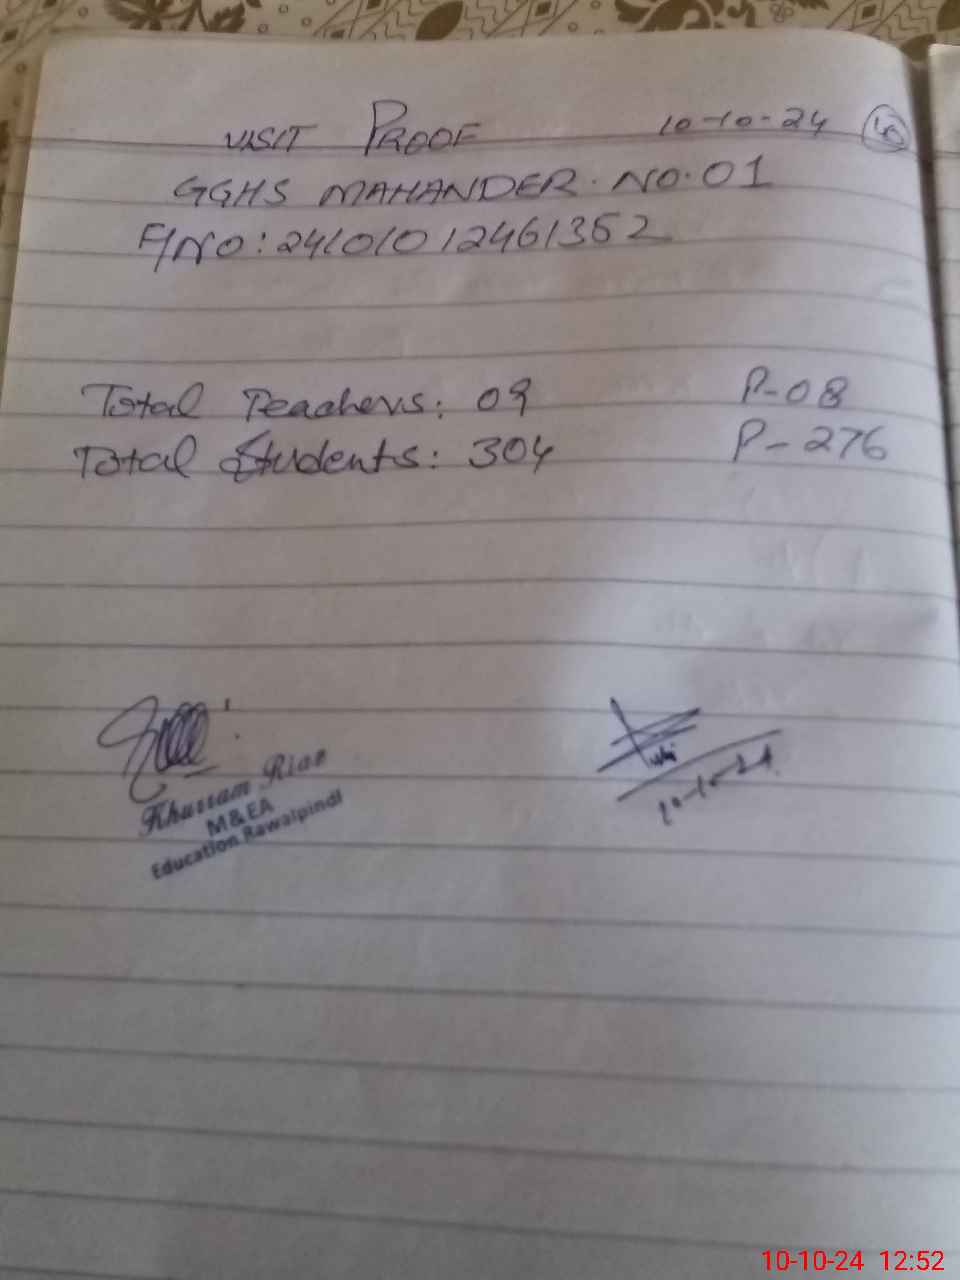 VISIT PROOF 10-10-24
GGHS MAHANDER. NO. 01
F/NO: 24101012461352
Total Teachers: 09 P-08
Total Students: 304 P-276
Khurram Riaz
M&EA
Education Rawalpindi
10-10-24
10-10-24 12:52